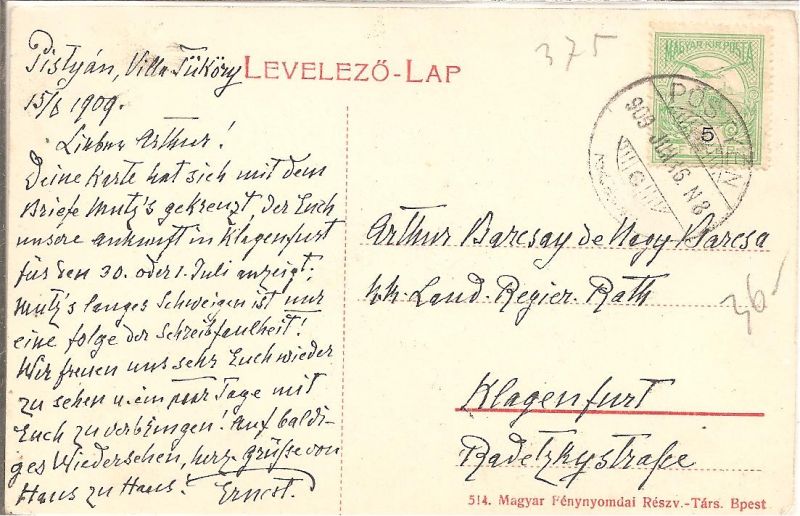 Pistyán, Villa Tüköry
15/6 1909.
Lieber Arthur!
Deine Karte hat sich mit dem
Briefe Mutz's gekreuzt, der Euch
unsere Ankunft in Klagenfurt
für den 30. oder 1. Juli anzeigt;
Mutz's langes Schweigen ist nur
eine Folge der Schreibfaulheit!
Wir freuen uns sehr Euch wieder
zu sehen u. ein paar Tage mit
Euch zu verbringen! Auf baldi-
ges Wiedersehen, herz. Grüsse von
Haus zu Haus! Ernest.
LEVELEZŐ-LAP
375
MAGYAR KIR. POSTA
5
PÖSTYÉN
909 JUN 16. N 8
Arthur Barcsay de Nagy Barcsa
kk. Land. Regier. Rath
36-
Klagenfurt
Radetzkystraße
514. Magyar Fénynyomdai Részv.-Társ. Bpest